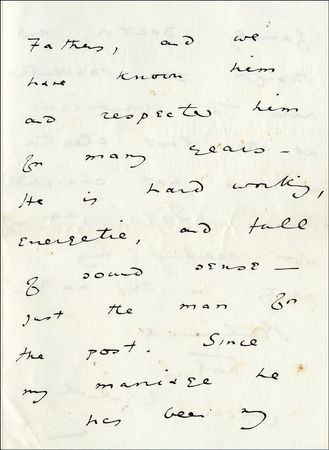 Fathers, and we
have known him
and respected him
for many years –
He is hard working,
energetic, and full
of sound sense –
just the man for
the post. Since
my marriage he
has been my